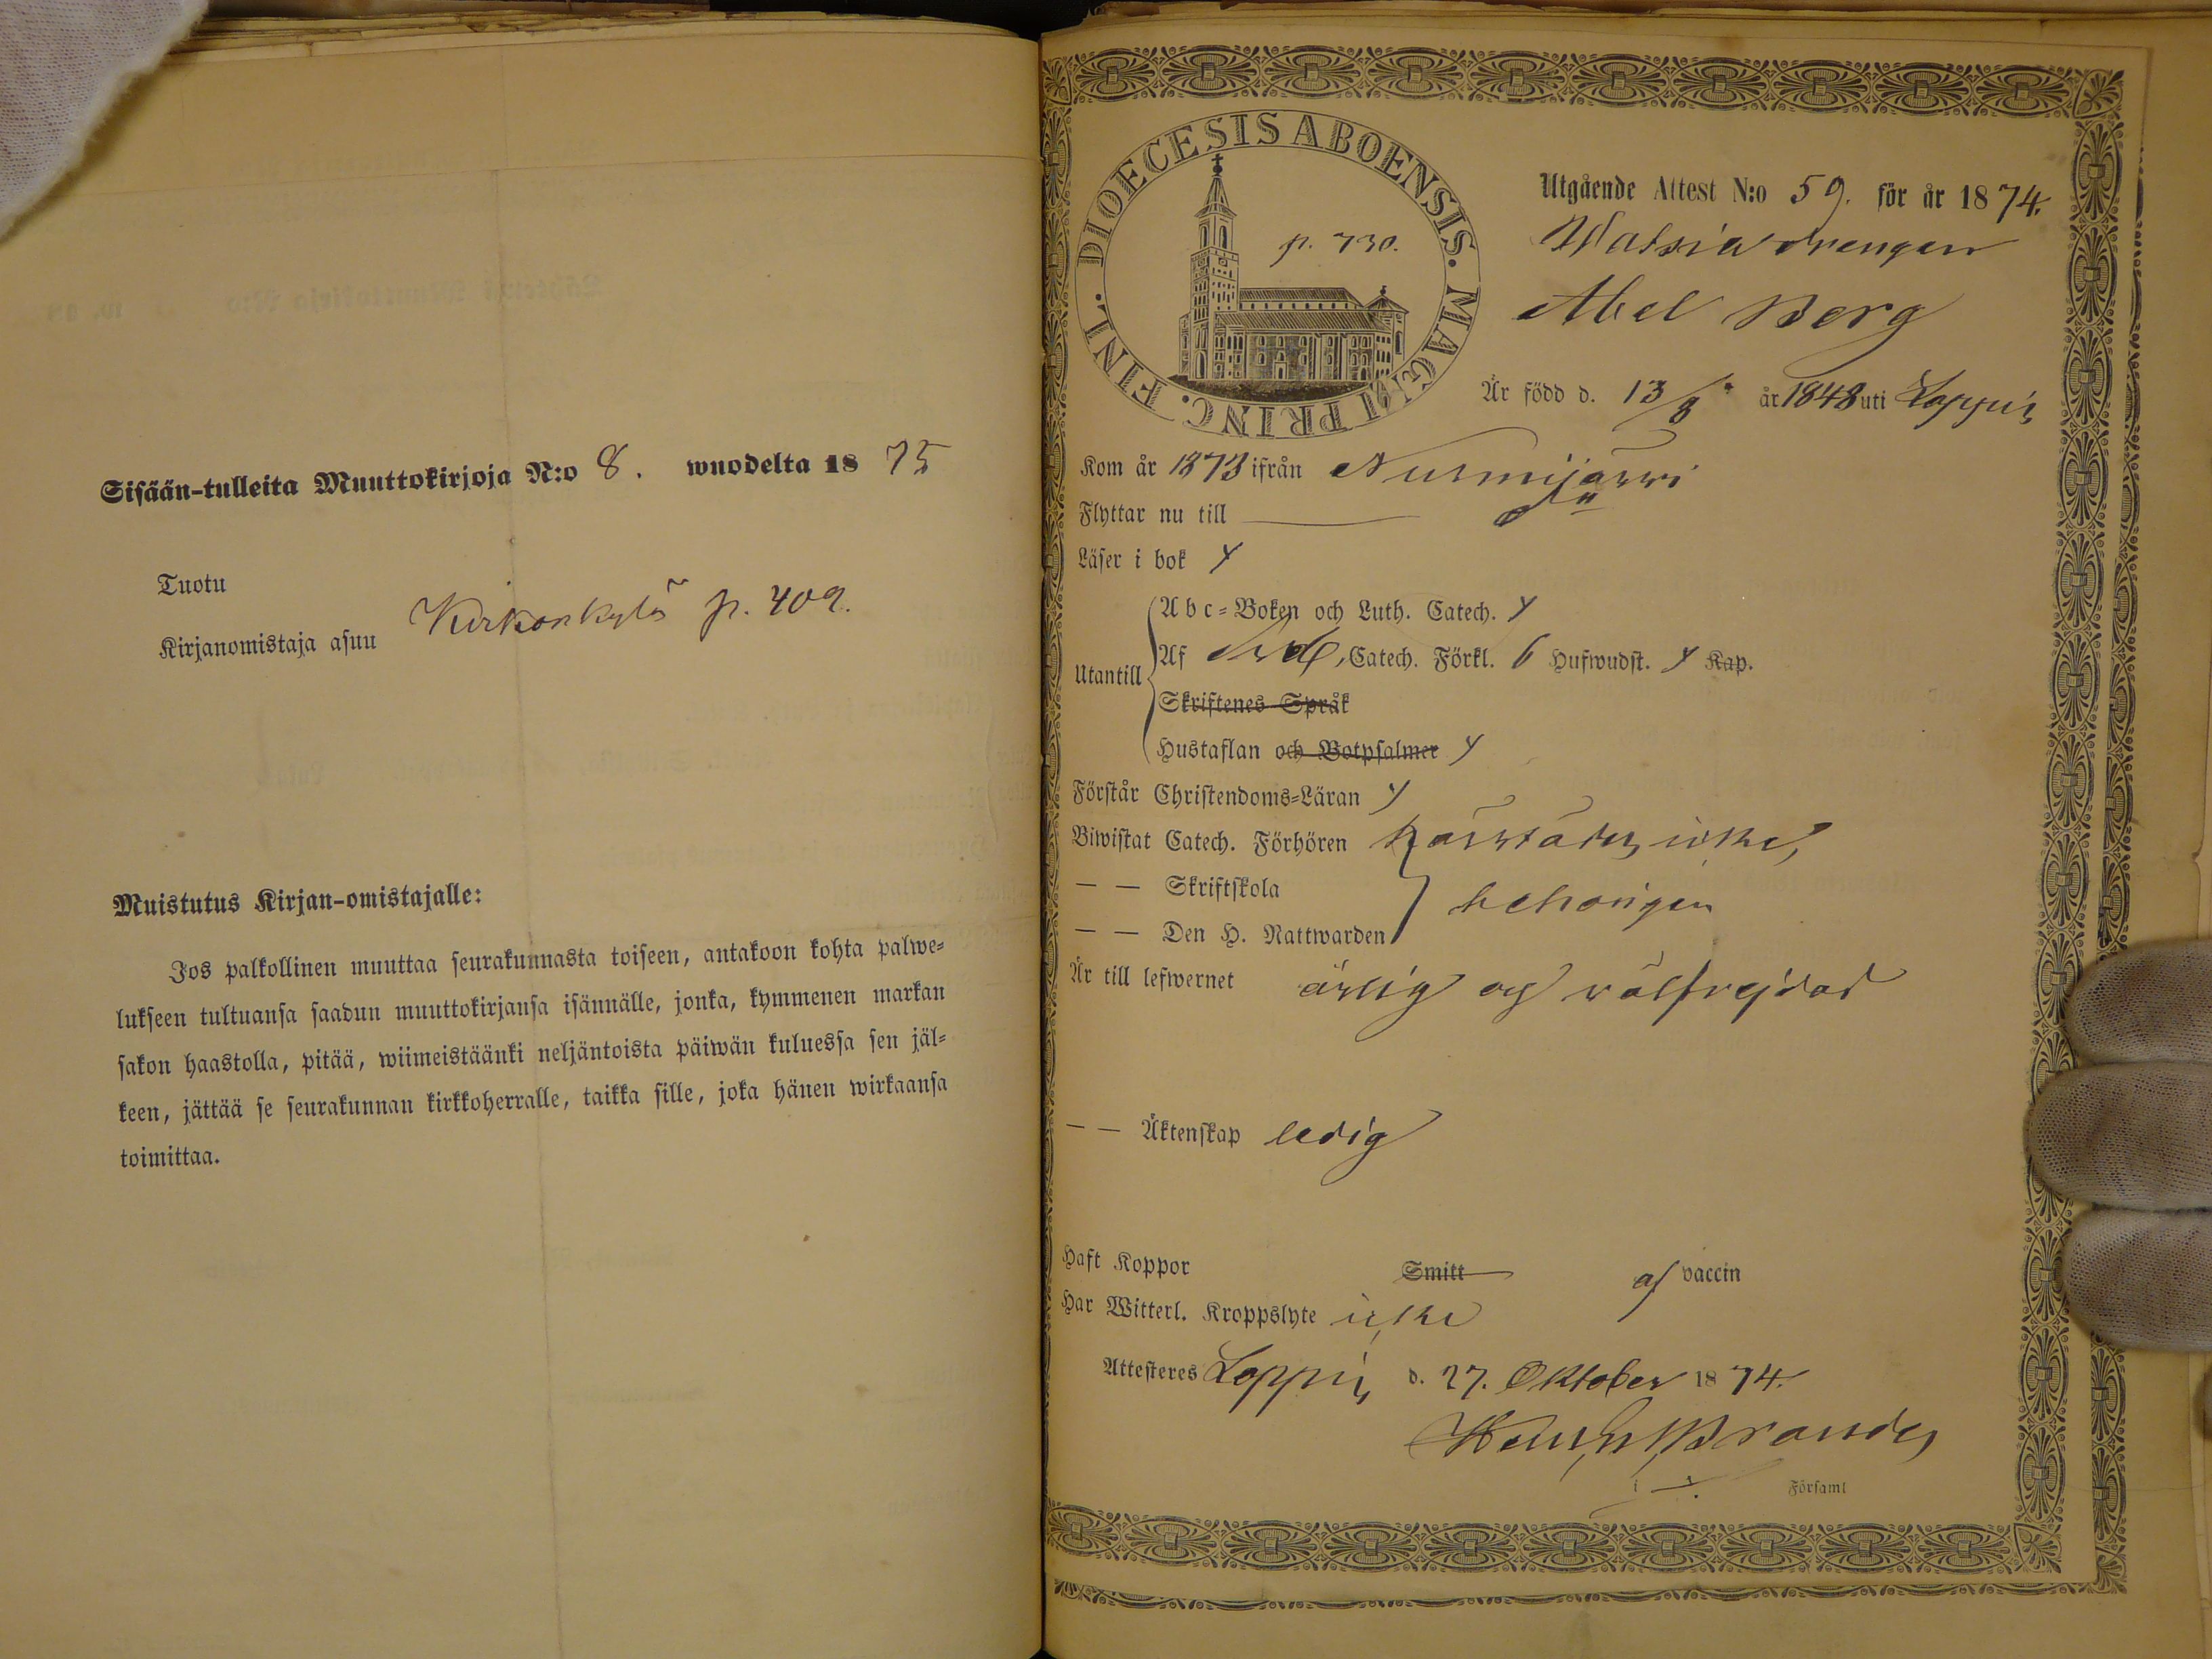 Sisään-tulleita Muuttokirjoja N:o 8. wuodelta 1875
Tuotu
Kirjanomistaja asuu Kirkonkylä p. 409.
Muistutus Kirjan-omistajalle:
Jos palkollinen muuttaa seurakunnasta toiseen, antakoon kohta palwe=
lukseen tultuansa saadun muuttokirjansa isännälle, jonka, kymmenen markan
sakon haastolla, pitää, wiimeistäänki neljäntoista päiwän kuluessa sen jäl=
keen, jättää se seurakunnan kirkkoherralle, taikka sille, joka hänen wirkaansa
toimittaa.
DIOECESIS ABOENSIS. MAGNI PRINC. FINL.
p. 730.
Utgående Attest N:o 59. för år 1874.
drengen
Abel Berg
Är född d. 13/8 år 1848 uti Loppis
Kom år 1873 ifrån Nurmijärvi
Flyttar nu till
Läser i bok y
Utantill
Abc=Boken och Luth. Catech. y
Af Catech. Förkl. 6 Hufwudst. y Kap.
Skriftenes Språk
Hustaflan och Botpsalmer y
Förstår Christendoms=Läran y
Biwistat Catech. Förhören härstädes icke,
— — Skriftskola
behörigen
— — Den H. Nattwarden
Är till lefwernet ärlig och välfrejdad
— — Äktenskap ledig
Haft Koppor Smitt af vaccin
Har Witterl. Kroppslyte icke
Attesteras Loppis, d. 27. Oktober 1874.
i Församl